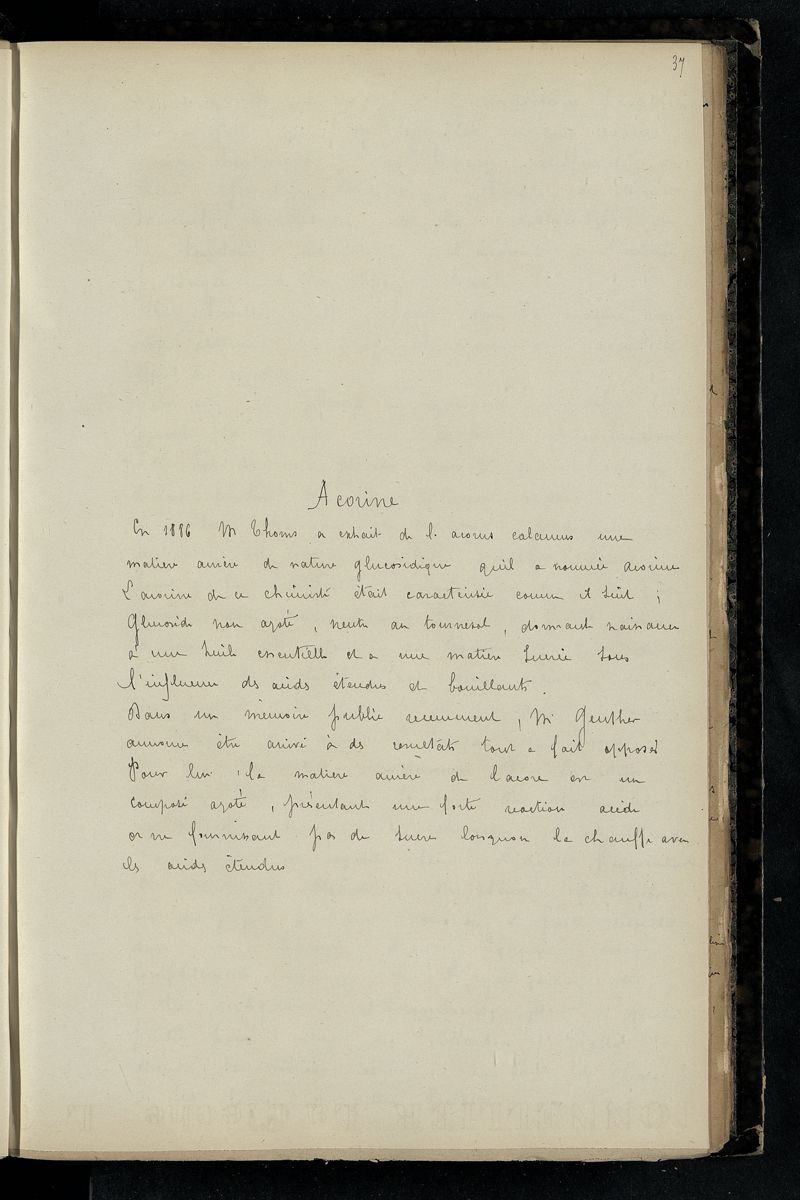 37
Acorine
En 1886 Mr Thoms a extrait de l'acorus calamus une
matiere amère de nature glucosidique qu'il a nommée acorine
L'acorine de ce chimiste était caracterisée comme il suit ;
Glucoside non azoté, neutre au tournesol, donnant naissance
à une huile essentielle et a une matiere sucrée sous
l'influence des acides étendus et bouillants.
Dans un mémoire publié recemment, Mr Geuther
annonce être arrivé à des resultats tout a fait opposés
Pour lui la matiere amère de l'acore est un
composé azoté, présentant une forte reaction acide
et ne fournissant pas de sucre lorsquon le chauffe avec
les acides étendus